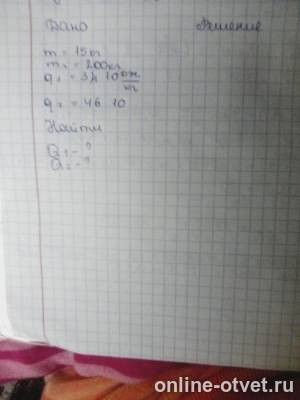 Дано Решение
m = 15 кг
m₂ = 200 кг
q₁ = 34 10 Дж/кг
q₂ = 46 10
Найти
Q₁ - ?
Q₂ - ?
online-otvet.ru